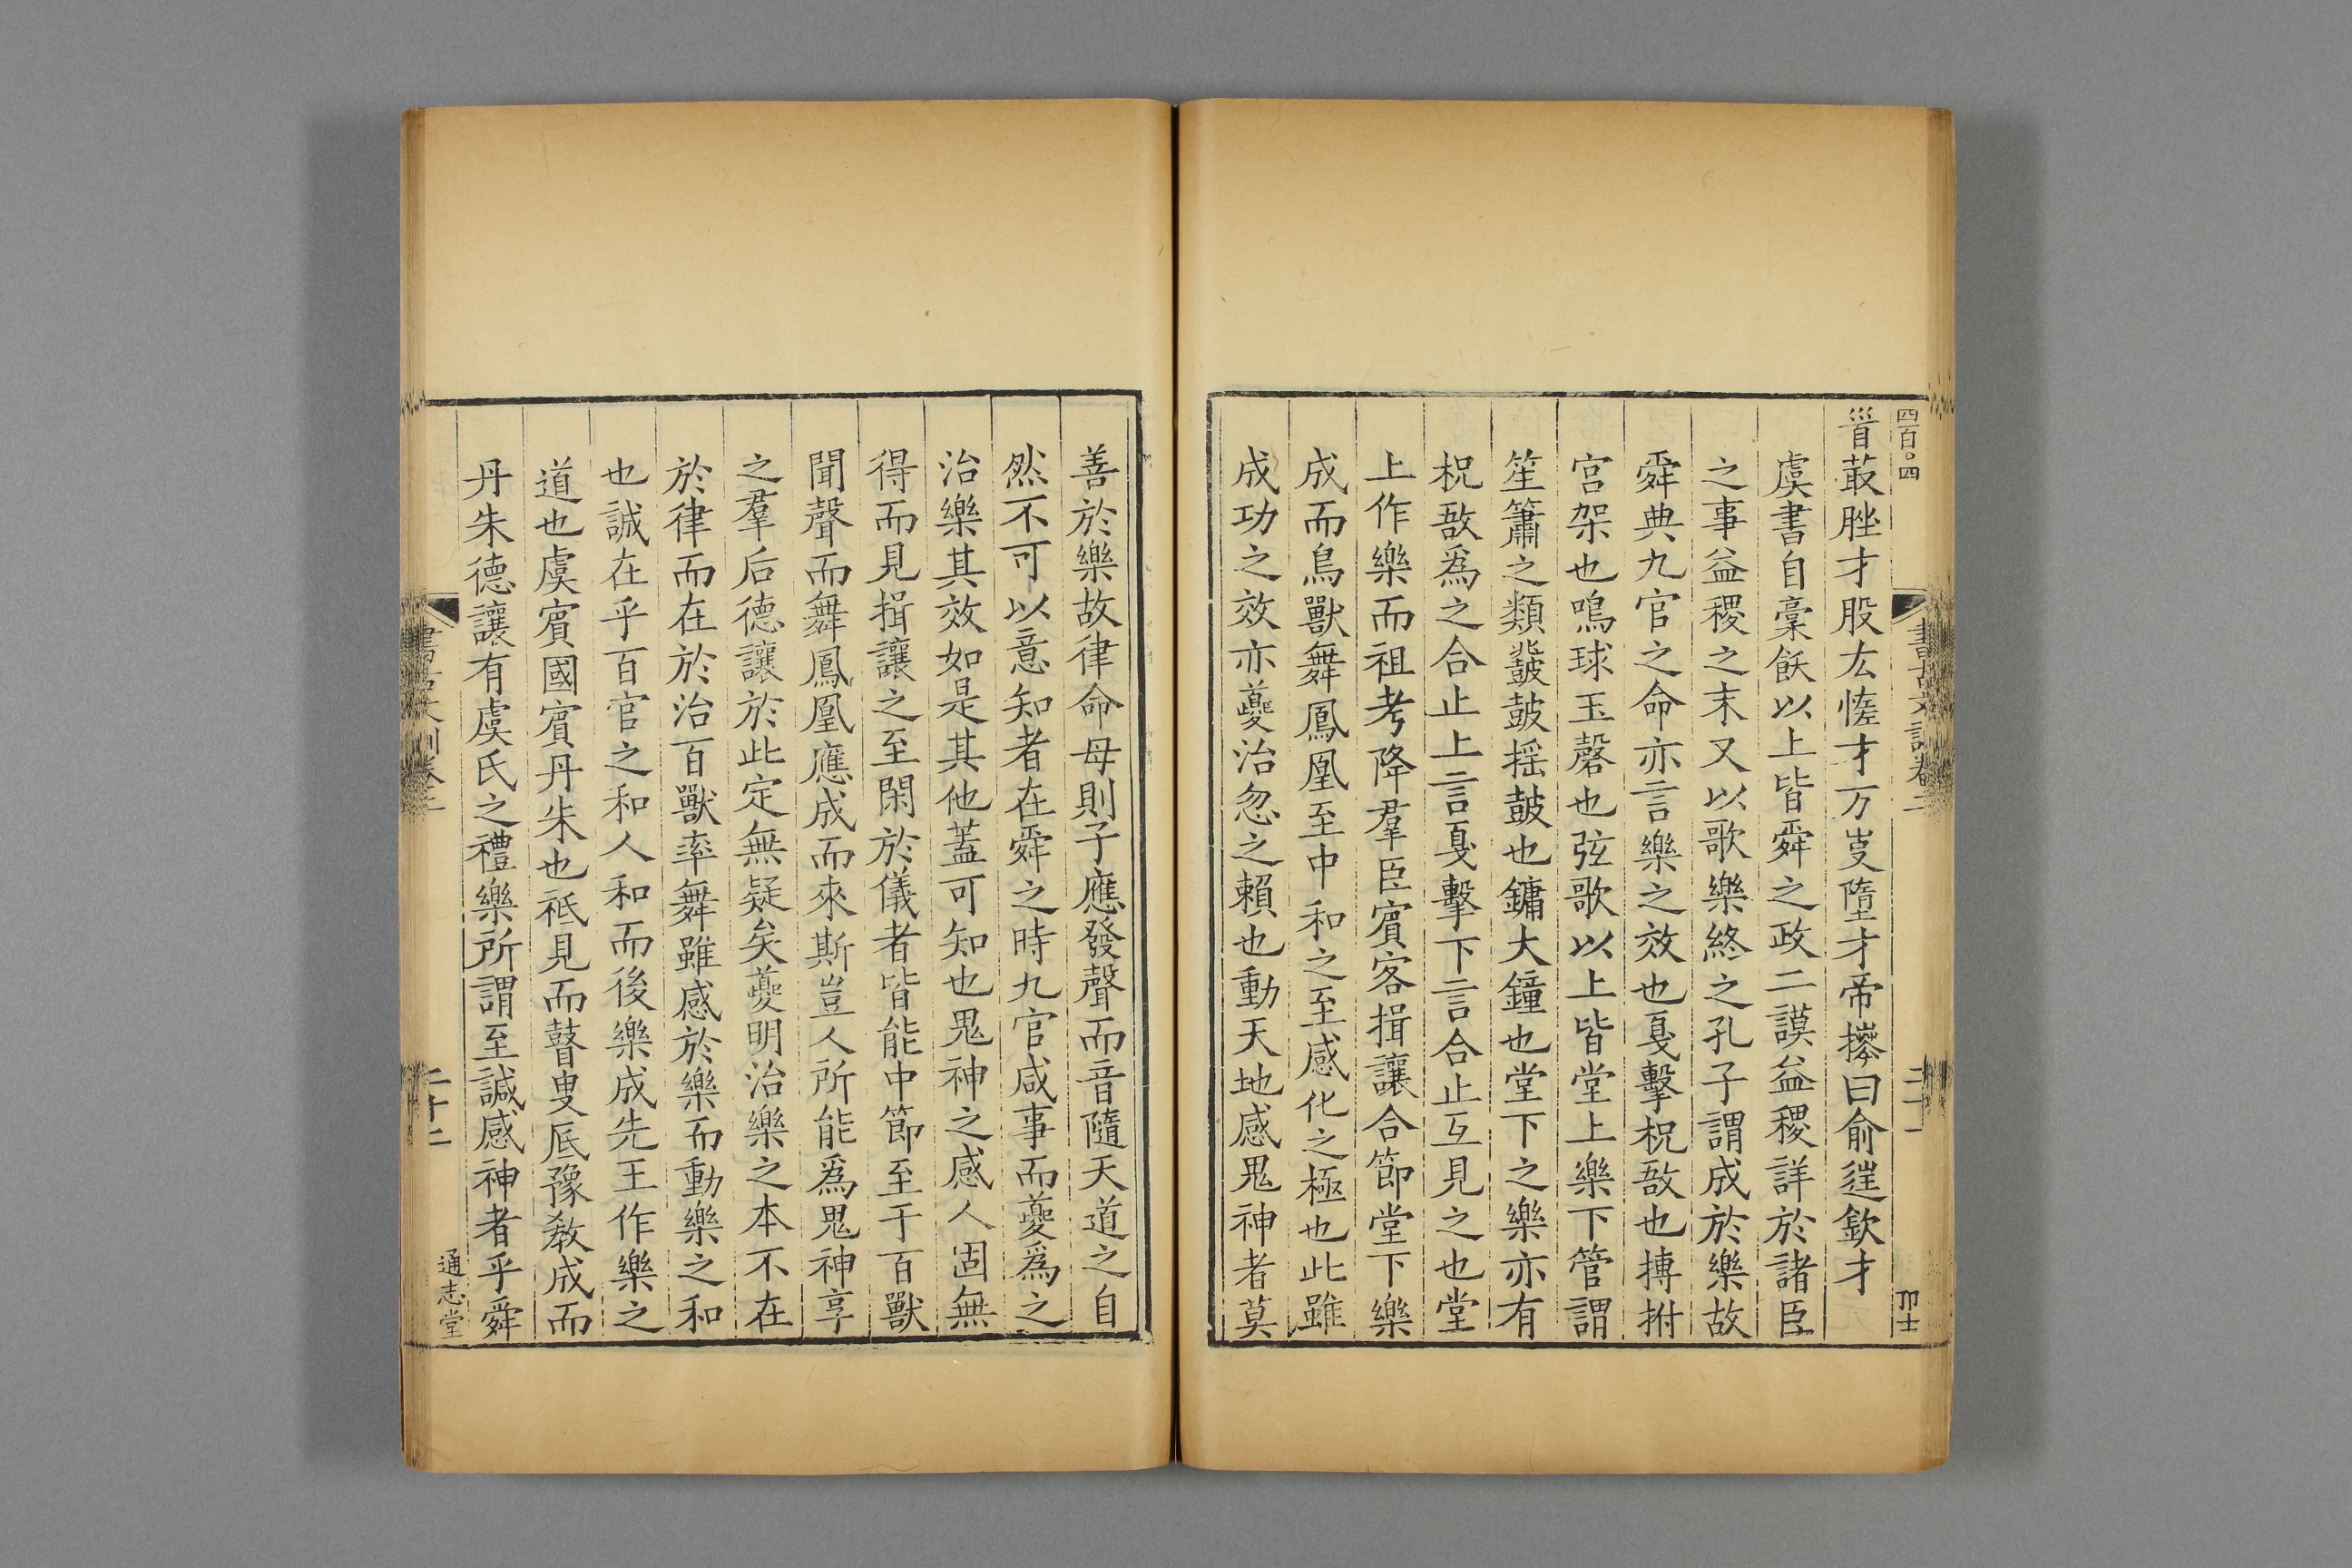 四百〇四
書古文訓卷二
二十一
卭士
𩠐叢脞才股厷惰才万㕝墮才帝𢷎曰俞𨓹欽才
虞書自稾飫以上皆舜之政二謨益稷詳於諸臣
之事益稷之末又以歌樂終之孔子謂成於樂故
舜典九官之命亦言樂之效也戛擊柷敔也搏拊
宮架也鳴球玉磬也弦歌以上皆堂上樂下管謂
笙簫之類鼗鼓搖鼓也鏞大鐘也堂下之樂亦有
柷敔爲之合止上言戛擊下言合止互見之也堂
上作樂而祖考降羣臣賓客揖讓合節堂下樂
成而鳥獸舞鳳凰至中和之至感化之極也此雖
成功之效亦夔治忽之賴也動天地感鬼神者莫
善於樂故律命母則子應發聲而音隨天道之自
然不可以意知者在舜之時九官咸事而夔爲之
治樂其效如是其他蓋可知也鬼神之感人固無
得而見揖讓之至閑於儀者皆能中節至于百獸
聞聲而舞鳳凰應成而來斯豈人所能爲鬼神享
之羣后德讓於此定無疑矣夔明治樂之本不在
於律而在於治百獸率舞雖感於樂而動樂之和
也誠在乎百官之和人和而後樂成先王作樂之
道也虞賓國賓丹朱也祗見而瞽叟厎豫敎成而
丹朱德讓有虞氏之禮樂所謂至諴感神者乎舜
書古文訓卷二
二十二
通志堂